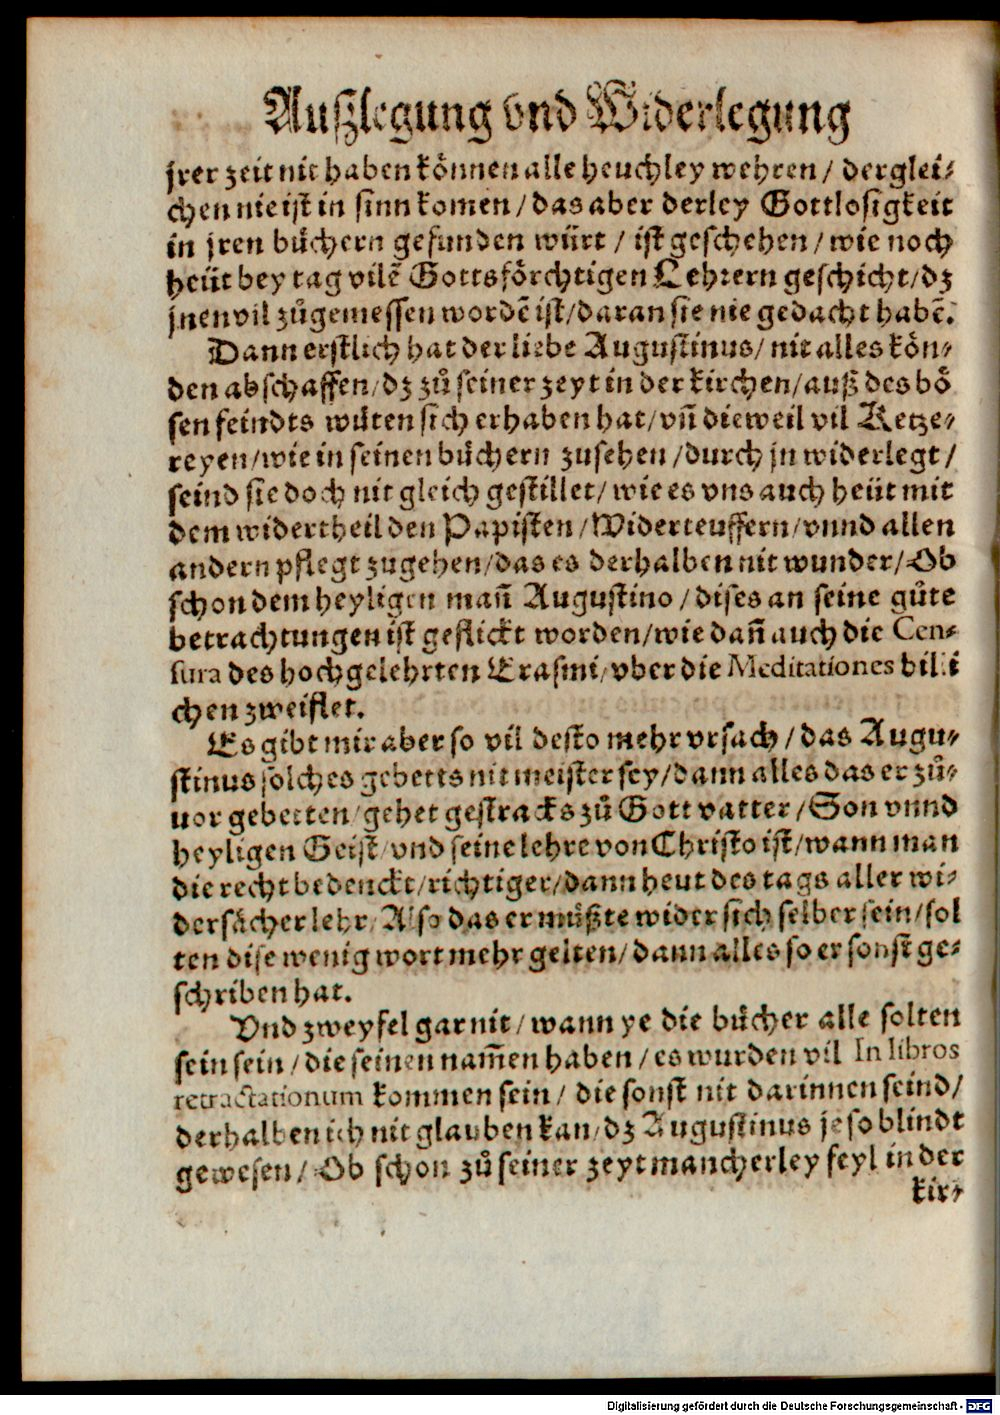 Auſzlegung vnd Widerlegung
jrer zeit nit haben können alle heuchley wehren / derglei⸗
chen nie iſt in ſinn komen / das aber derley Gottloſigkeit
in jren bůchern gefunden würt / iſt geſchehen / wie noch
heüt bey tag vilẽ Gottsförchtigen Lehrern geſchicht / dz
jnen vil zůgemeſſen wordẽ iſt / daran ſie nie gedacht habẽ.
Dann erſtlich hat der liebe Auguſtinus / nit alles kön⸗
den abſchaffen / dz zů ſeiner zeyt in der kirchen / auß des bö
ſen feindts wüten ſich erhaben hat / vñ dieweil vil Ketze⸗
reyen / wie in ſeinen büchern zuſehen / durch jn widerlegt /
ſeind ſie doch nit gleich geſtillet / wie es vns auch heüt mit
dem widertheil den Papiſten / Widerteuffern / vnnd allen
andern pflegt zugehen / das es derhalben nit wunder / Ob
ſchon dem heyligen mañ Auguſtino / diſes an ſeine gůte
betrachtungen iſt geflickt worden / wie dañ auch die Cen⸗
ſura des hochgelehrten Eraſmi / vber die Meditationes billi
chen zweiflet.
Es gibt mir aber ſo vil deſto mehr vrſach / das Augu⸗
ſtinus ſolches gebetts nit meiſter ſey / dann alles das er zů⸗
uor gebetten / gehet geſtracks zů Gott vatter / Son vnnd
heyligen Geiſt / vnd ſeine lehre von Chriſto iſt / wann man
die recht bedenckt / richtiger / dann heut des tags aller wi⸗
derſächer lehr / Alſo das er můßte wider ſich ſelber ſein / ſol
ten diſe wenig wort mehr gelten / dann alles ſo er ſonſt ge⸗
ſchriben hat.
Vnd zweyfel gar nit / wann ye die bůcher alle ſolten
ſein ſein / die ſeinen nam̃en haben / es wurden vil In libros
retractationum kommen ſein / die ſonſt nit darinnen ſeind /
derhalben ich nit glauben kan / dz Auguſtinus je ſo blindt
geweſen / Ob ſchon zů ſeiner zeyt mancherley feyl in der
kir⸗
Digitalisierung gefördert durch die Deutsche Forschungsgemeinschaft - DFG